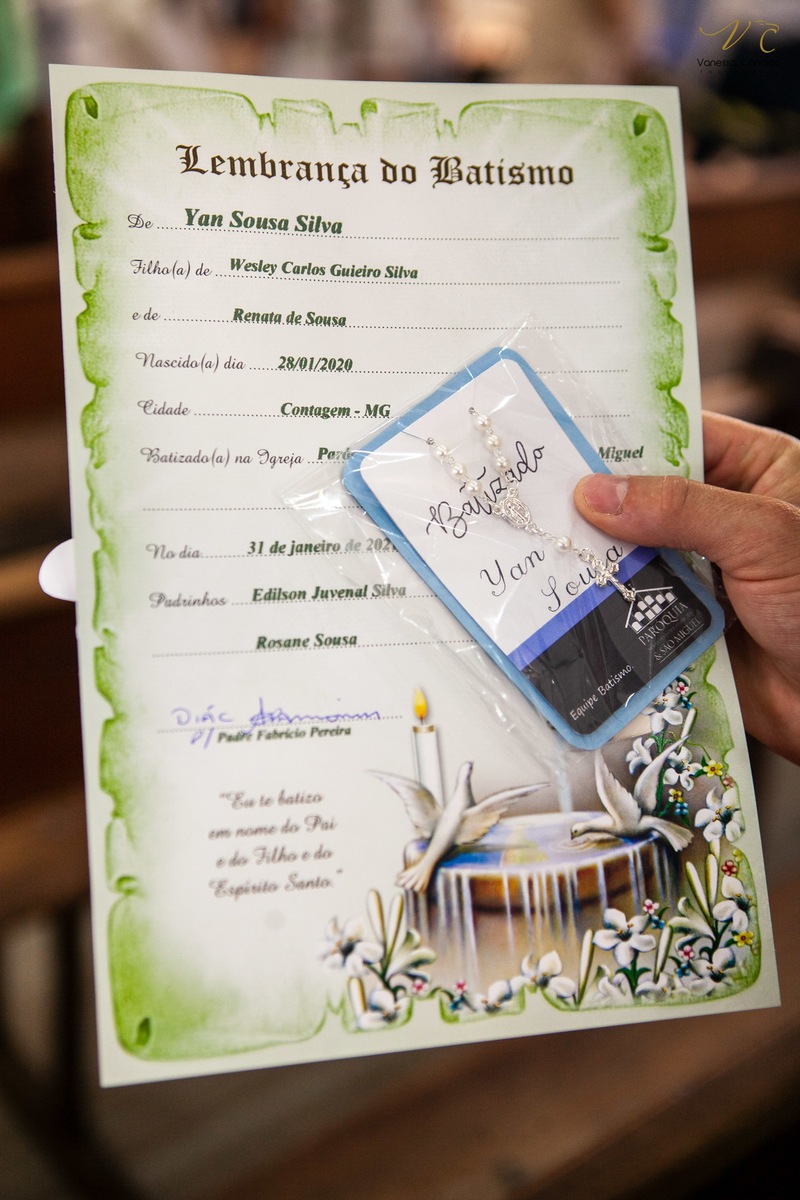 VC
Vanessa
Lembrança do Batismo
De Yan Sousa Silva
Filho(a) de Wesley Carlos Guieiro Silva
e de Renata de Sousa
Nascido(a) dia 28/01/2020
Cidade Contagem - MG
Batizado(a) na Igreja Miguel
No dia 31 de janeiro de
Padrinhos Edilson Juvenal Silva
Rosane Sousa
Diác
p/ Padre Fabrício Pereira
"Eu te batizo
em nome do Pai
e do Filho e do
Espírito Santo."
Batizado
Yan
Sousa
PAROQUIA
SÃO MIGUEL
Equipe Batismo.